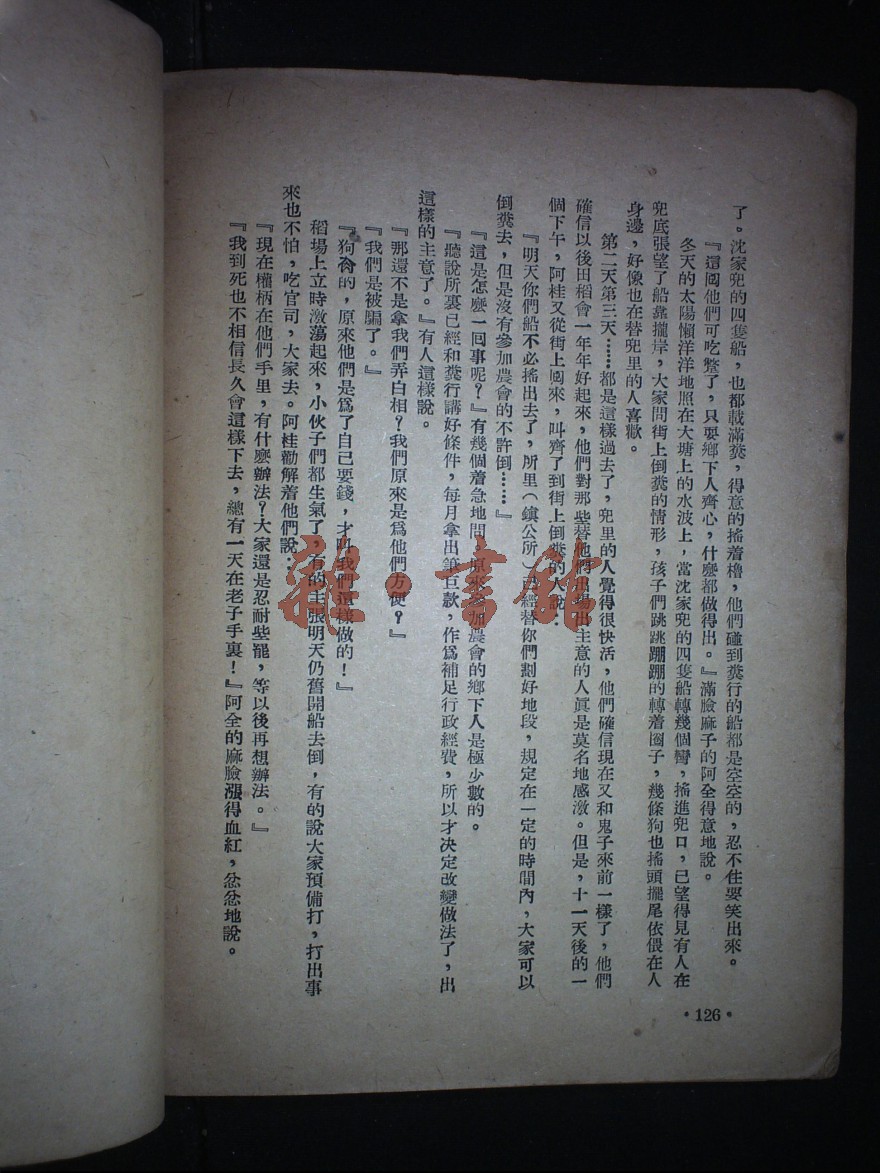 了。沈家兜的四隻船，也都載滿糞，得意的搖着櫓，他們碰到糞行的船都是空空的，忍不住要笑出來。
『這囘他們可吃癟了，只要鄉下人齊心，什麼都做得出。』滿臉麻子的阿全得意地說。
冬天的太陽懶洋洋地照在大塘上的水波上，當沈家兜的四隻船轉幾個彎，搖進兜口，已望得見有人在
兜底張望了船靠攏岸，大家問街上倒糞的情形，孩子們跳跳蹦蹦的轉着圈子，幾條狗也搖頭擺尾依偎在人
身邊，好像也在替兜里的人喜歡。
第二天第三天……都是這樣過去了，兜里的人覺得很快活，他們確信現在又和鬼子來前一樣了，他們
確信以後田稻會一年年好起來，他們對那些替他們出場出主意的人眞是莫名地感激。但是，十一天後的一
個下午，阿桂又從街上囘來，叫齊了到街上倒糞的人說：
『明天你們船不必搖出去了，所里（鎮公所）已經替你們劃好地段，規定在一定的時間內，大家可以
倒糞去，但是沒有參加農會的不許倒……』
『這是怎麼一囘事呢？』有幾個着急地問，原來參加農會的鄉下人是極少數的。
『聽說所裏已經和糞行講好條件，每月拿出筆巨款，作爲補足行政經費，所以才決定改變做法了，出
這樣的主意了。』有人這樣說。
『那還不是拿我們弄白相？我們原來是爲他們方便？』
『我們是被騙了。』
『狗肏的，原來他們是爲了自己要錢，才叫我們這樣做的！』
稻場上立時激蕩起來，小伙子們都生氣了，有的主張明天仍舊開船去倒，有的說大家預備打，打出事
來也不怕，吃官司，大家去。阿桂勸解着他們說：
『現在權柄在他們手里，有什麼辦法？大家還是忍耐些罷，等以後再想辦法。』
『我到死也不相信長久會這樣下去，總有一天在老子手裏！』阿全的麻臉漲得血紅，忿忿地說。
•126•
雜·書館